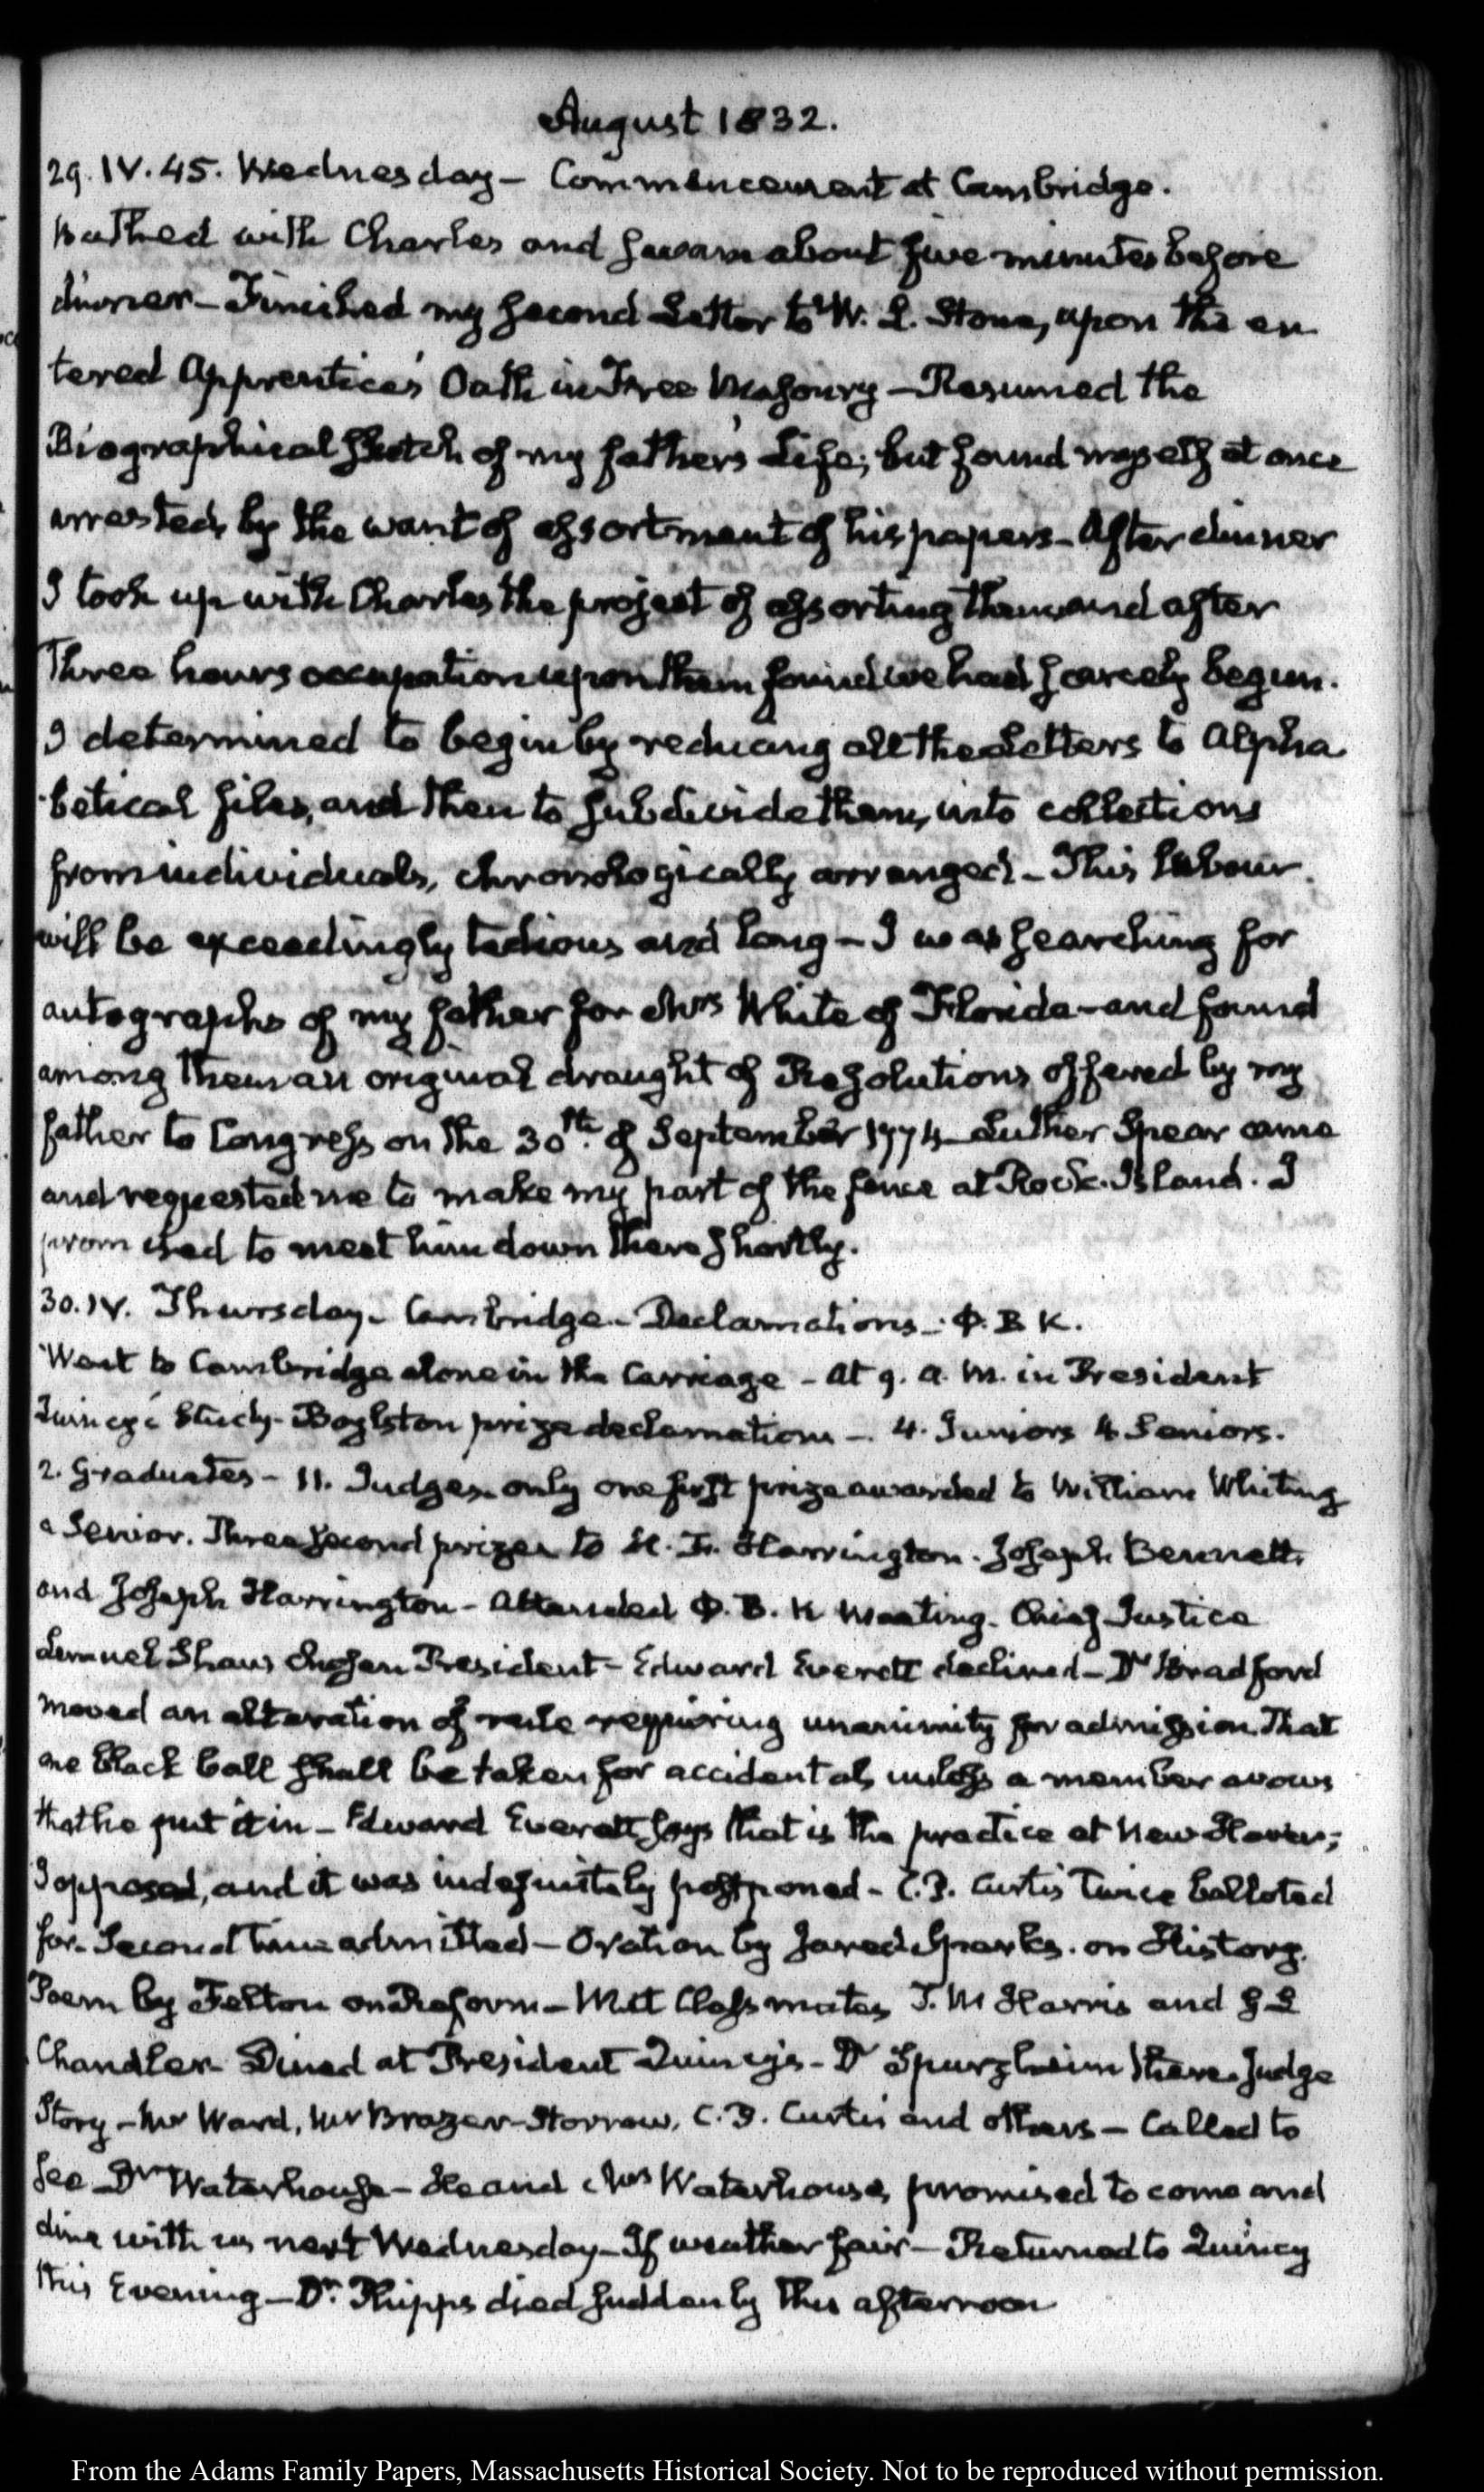 August 1832.
29. IV. 45. Wednesday – Commencement at Cambridge.
Bathed with Charles and swam about five minutes before
dinner – Finished my second Letter to W. L. Stone, upon the en
tered Apprentice's Oath in Free Masonry – Resumed the
Biographical Sketch of my father's Life; but found myself at once
arrested, by the want of assortment of his papers – After dinner
I took up with Charles the project of assorting them, and after
Three hours occupation upon them found we had scarcely begun.
I determined to begin by reducing all the Letters to Alpha
betical files, and then to subdivide them, into collections
from individuals, chronologically arranged – This labour
will be exceedingly tedious and long – I was searching for
autographs of my father for Mrs White of Florida – and found
among them an original draught of Resolutions offered by my
father to Congress on the 30th. of September 1774 – Luther Spear came
and requested me to make my part of the fence at Rock-Island. I
promised to meet him down there shortly.
30. IV. Thursday – Cambridge – Declamations – Φ. B K.
Went to Cambridge alone in the Carriage – At 9. a. m. in President
Quincy's Study – Boylston prize declamations – 4. Juniors 4 Seniors.
2. Graduates – 11. Judges – only one first prize awarded to William Whiting
a Senior. Three second prizes to H. F. Harrington. Joseph Bennett.
and Joseph Harrington – Attended Φ. B. K meeting. Chief Justice
Lemuel Shaw chosen President – Edward Everett declined – Dr Bradford
moved an alteration of rule requiring unanimity for admission. That
one black ball shall be taken for accidental, unless a member avows
that he put it in – Edward Everett says that is the practice at New Haven;
I opposed, and it was indefinitely postponed – C. P. Curtis twice balloted
for. Second time admitted – Oration by Jared Sparks. on History.
Poem by Felton on Reform – Met Classmates T. M Harris and G L
Chandler – Dined at President Quincy's – Dr Spurzheim there. Judge
Story – Mr Ward, Mr Brazer – Storrow, C. P. Curtis and others – Called to
see Dr Waterhouse – He and Mrs Waterhouse, promised to come and
dine with us next Wednesday – If weather fair – Returned to Quincy
this Evening – Dr. Phipps died suddenly this afternoon
From the Adams Family Papers, Massachusetts Historical Society. Not to be reproduced without permission.